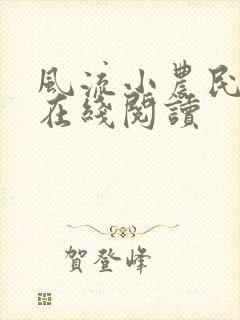 風流小農民
在綫閱讀
賀登峰